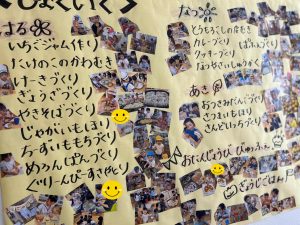 <しょくいく>
はる
いちごジャム作り
たけのこのかわむき
けーきづくり
ぎょうざづくり
やきそばづくり
じゃがいもほり
ちーずいももちづくり
めろんぱんづくり
ぐりーんぴーすさやとり
なつ
とうもろこしの皮むき
カレーづくり
ピザづくり
あき
おつきみだんごづくり
さつまいもほり
さんどいっちづくり
おたんじょうび びゅっふぇ
ぎょうじごはん